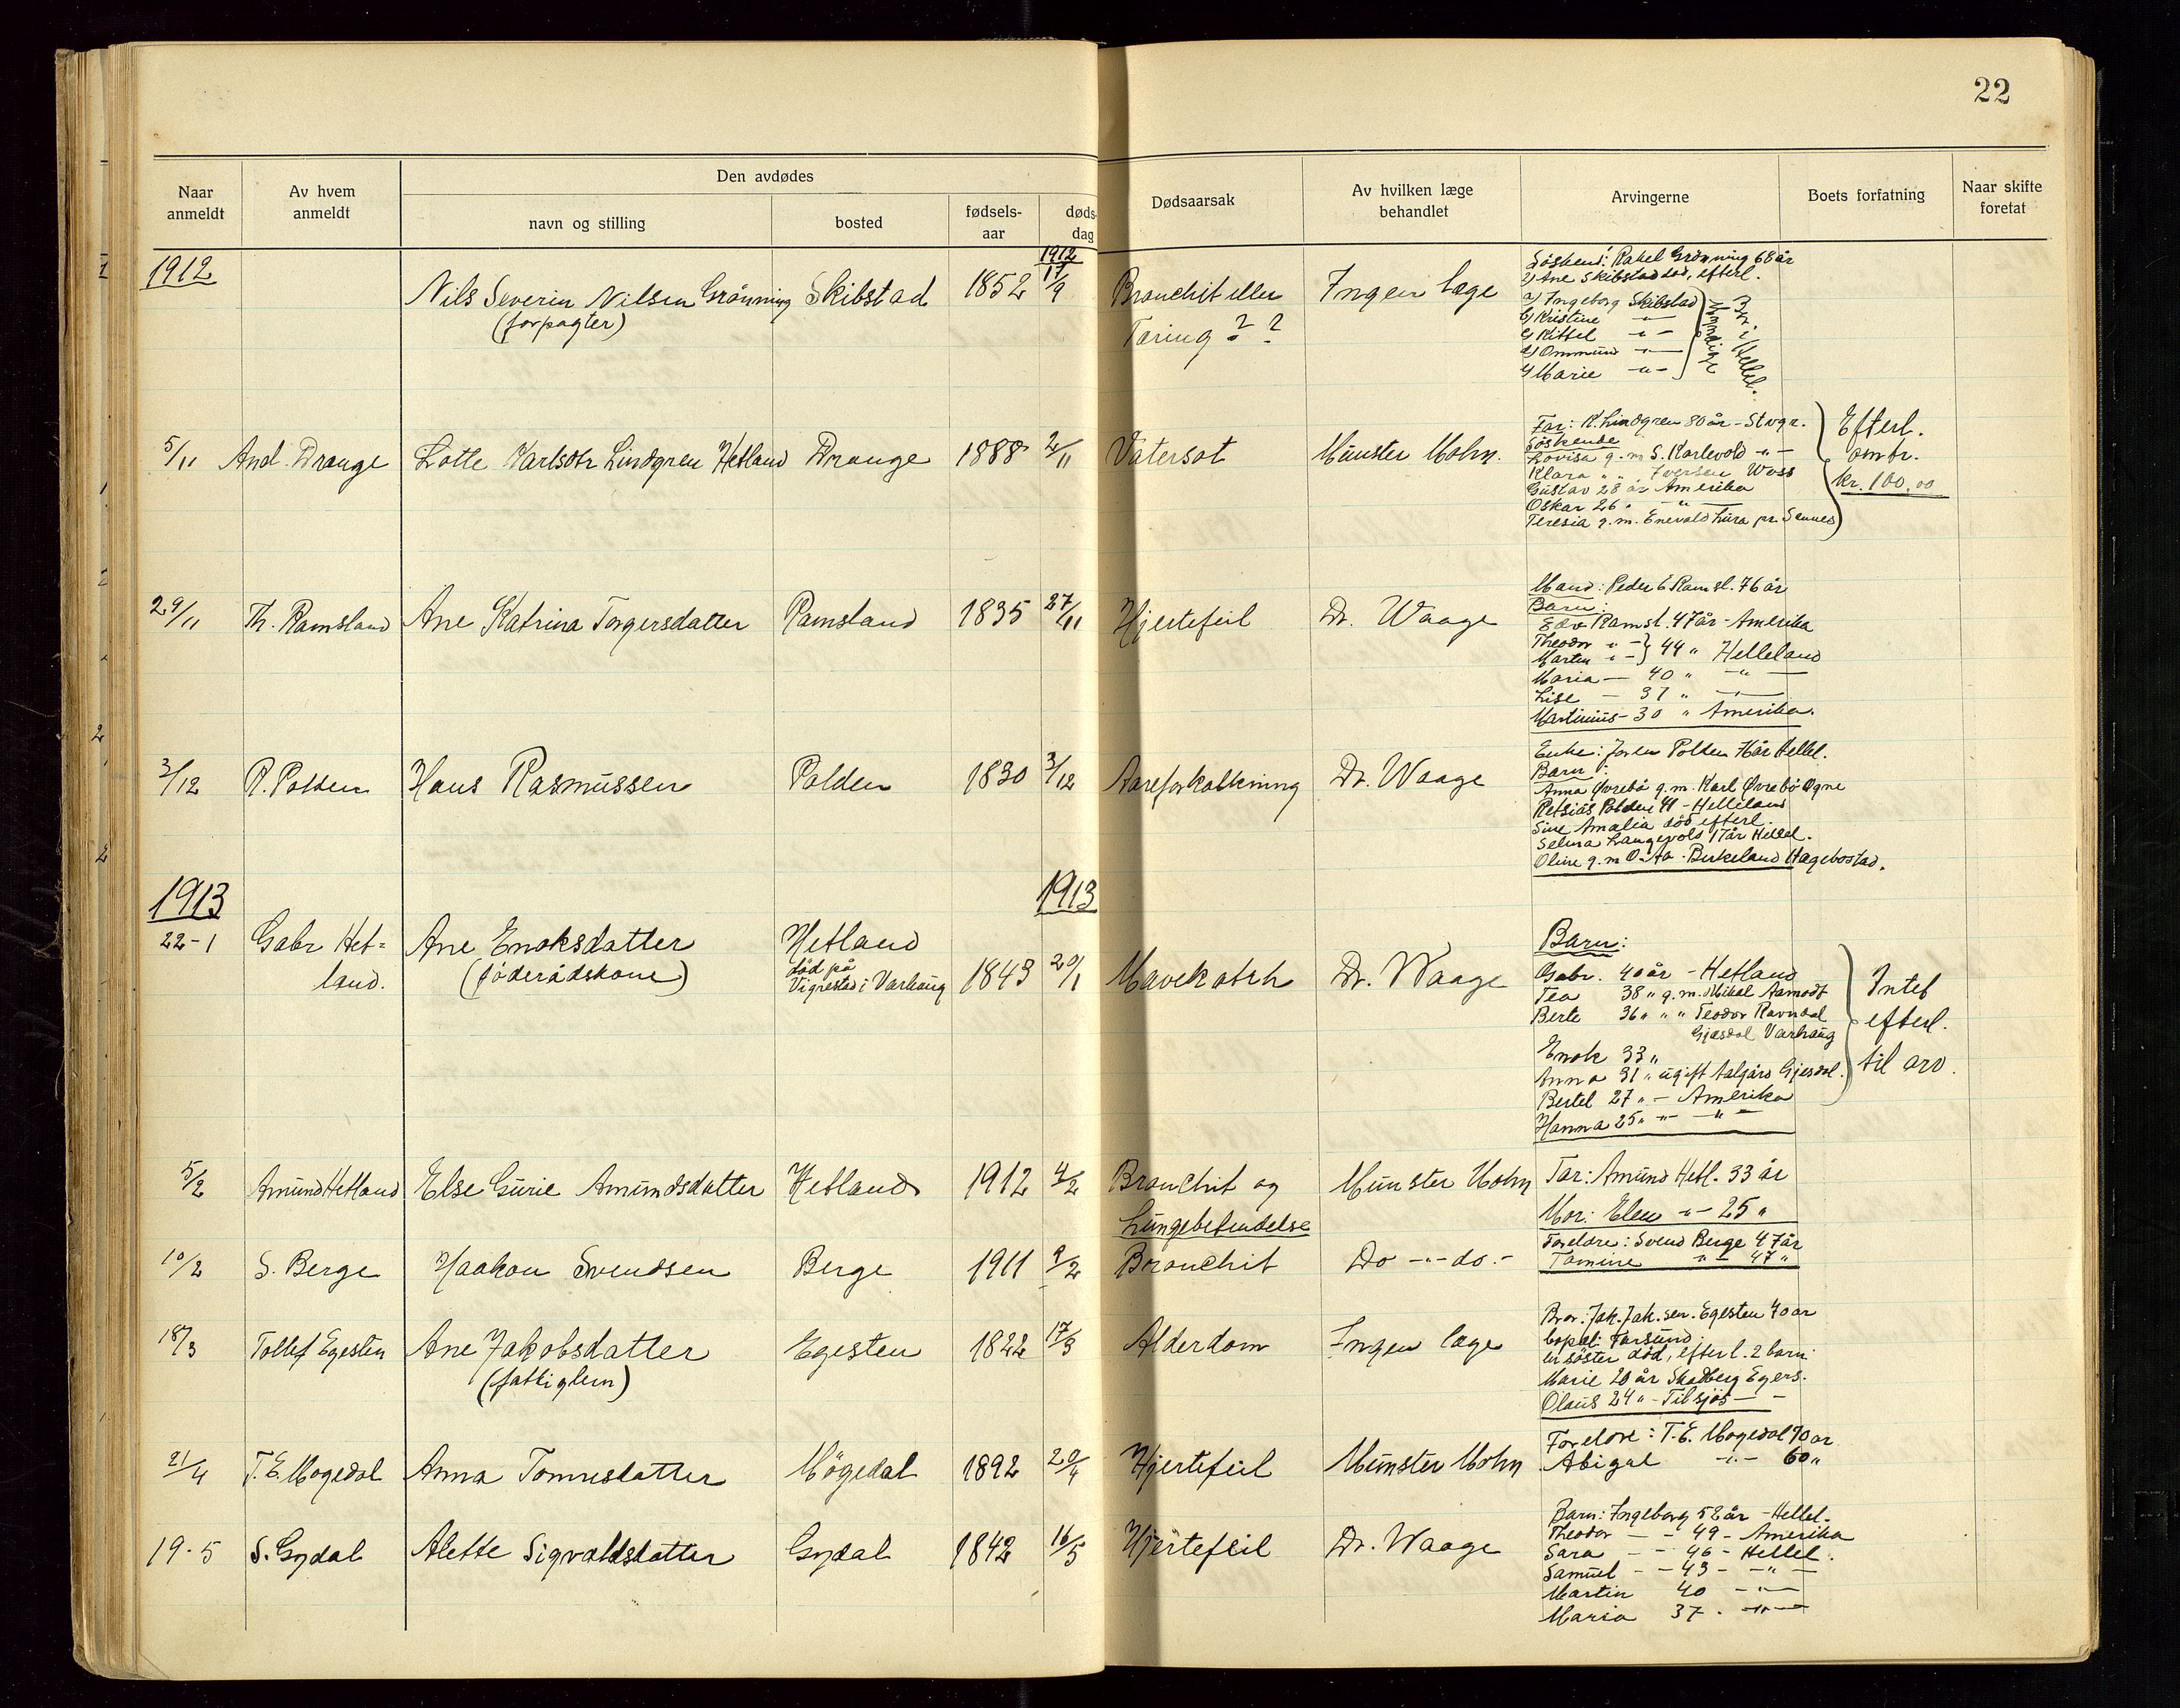 22
Naar anmeldt
Av hvem anmeldt
Den avdødes
navn og stilling
bosted
fødsels-aar
døds-dag
Dødsaarsak
Av hvilken læge behandlet
Arvingerne
Boets forfatning
Naar skifte foretat
1912
1912
Nils Severin Nilsen Grönning Skibstad 1852 17/9 Bronchit eller Ingen læge
(forpagter)
Tæring ? ?
Söskend: Rakel Grönning 68 år
2) Ane Skibstad död, efterl.
a) Ingeborg Skibstad
b) Kristine -"-
c) Kittel -"-
d) Ommund -"-
Marie -"-
5/11 And. Drange Lotte Karlsdtr Lindgren Hetland Drange 1888 2/11 Vatersot Münster Mohn.
Far: K. Lindgren 80 år - Stvgr.
Söskende
Lovisa g.m S. Karlevold -"-
Klara " " Iversen Voss
Gustav 28 år Amerika
Oskar 26 " -"-
Teresia g.m. Enevald Lura pr. Sannes
Efterl.
omtr.
kr. 100.00
29/11 Th. Ramsland Ane Katrina Torgersdatter Ramsland 1835 27/11 Hjertefeil Dr. Waage
Mand: Peder E Ramsl. 76 år
Barn:
Edv Ramsl. 47 år - Amerika
Theodor -"-
Marten -"- } 44 " Helleland
Maria — 40 " -"-
Lise — 37 " -"-
Martinius - 30 " Amerika.
3/12 R. Polden Hans Rasmussen Polden 1830 3/12 Aareforkalkning Dr. Waage
Enke: Joren Polden 76 år Hellel.
Barn:
Anna Øvrebö g.m. Karl Øvrebö Ogne
Retsius Polden 41 - Helleland
Sine Amalia död efterl.
Selma Laugevold 17 år Hellel.
Oline g.m O. Aa. Birkeland Hægebostad.
1913
1913
22-1 Gabr Het=land. Ane Enoksdatter Hetland
(föderådskone)
död på
Vigrestad i Varhaug 1843 20/1 Mavekatrh Dr. Waage
Barn:
Gabr. 40 år - Hetland
Tea 38 " g.m. Mikal Aamodt
Berte 36 " " " Teodor Ravndal
Gjesdal Varhaug
Enok 33 "
Anna 31 " ugift Aalgård Gjesdal.
Bertel 27 " - Amerika
Hanna 25 " -"- -"-
Intet
efterl.
til arv.
5/2 Amund Hetland Else Gurie Amundsdatter Hetland 1912 4/2 Bronchit og Münster Mohn
Lungebetendelse
Far: Amund Hetl. 33 år
Mor: Elen -"- 25 "
10/2 S. Berge Haakon Svendsen Berge 1911 9/2 Bronchit Do -"- do.-
Foreldre: Svend Berge 47 år
Tomine -"- 47 "
18/3 Tollef Egesten Ane Jakobsdatter Egesten 1822 17/3 Alderdom Ingen læge
(fattiglem)
Bror: Jak. Jak.sen. Egesten 70 år
bopæl: Farsund.
en söster död, efterl. 2 barn
Marie 20 år Skadberg Egers.
Olaus 24 " - Tilsjös — -
21/4 T.E. Mogedal Anna Tomnesdatter Mögedal 1892 20/4 Hjertefeil Münster Mohn
Foreldre: T.E. Mogedal 70 år
Abigal -"- 60 "
19-5 S. Gydal Alette Sigvaldsdatter Gydal 1842 16/5 Hjertefeil Dr. Waage
Barn: Ingeborg 52 år - Hellel.
Theodor — - 49 - Amerika
Sara — - 46 - Hellel.
Samuel - - 43 - -"-
Martin 40 -"-
Maria 37 - -"-